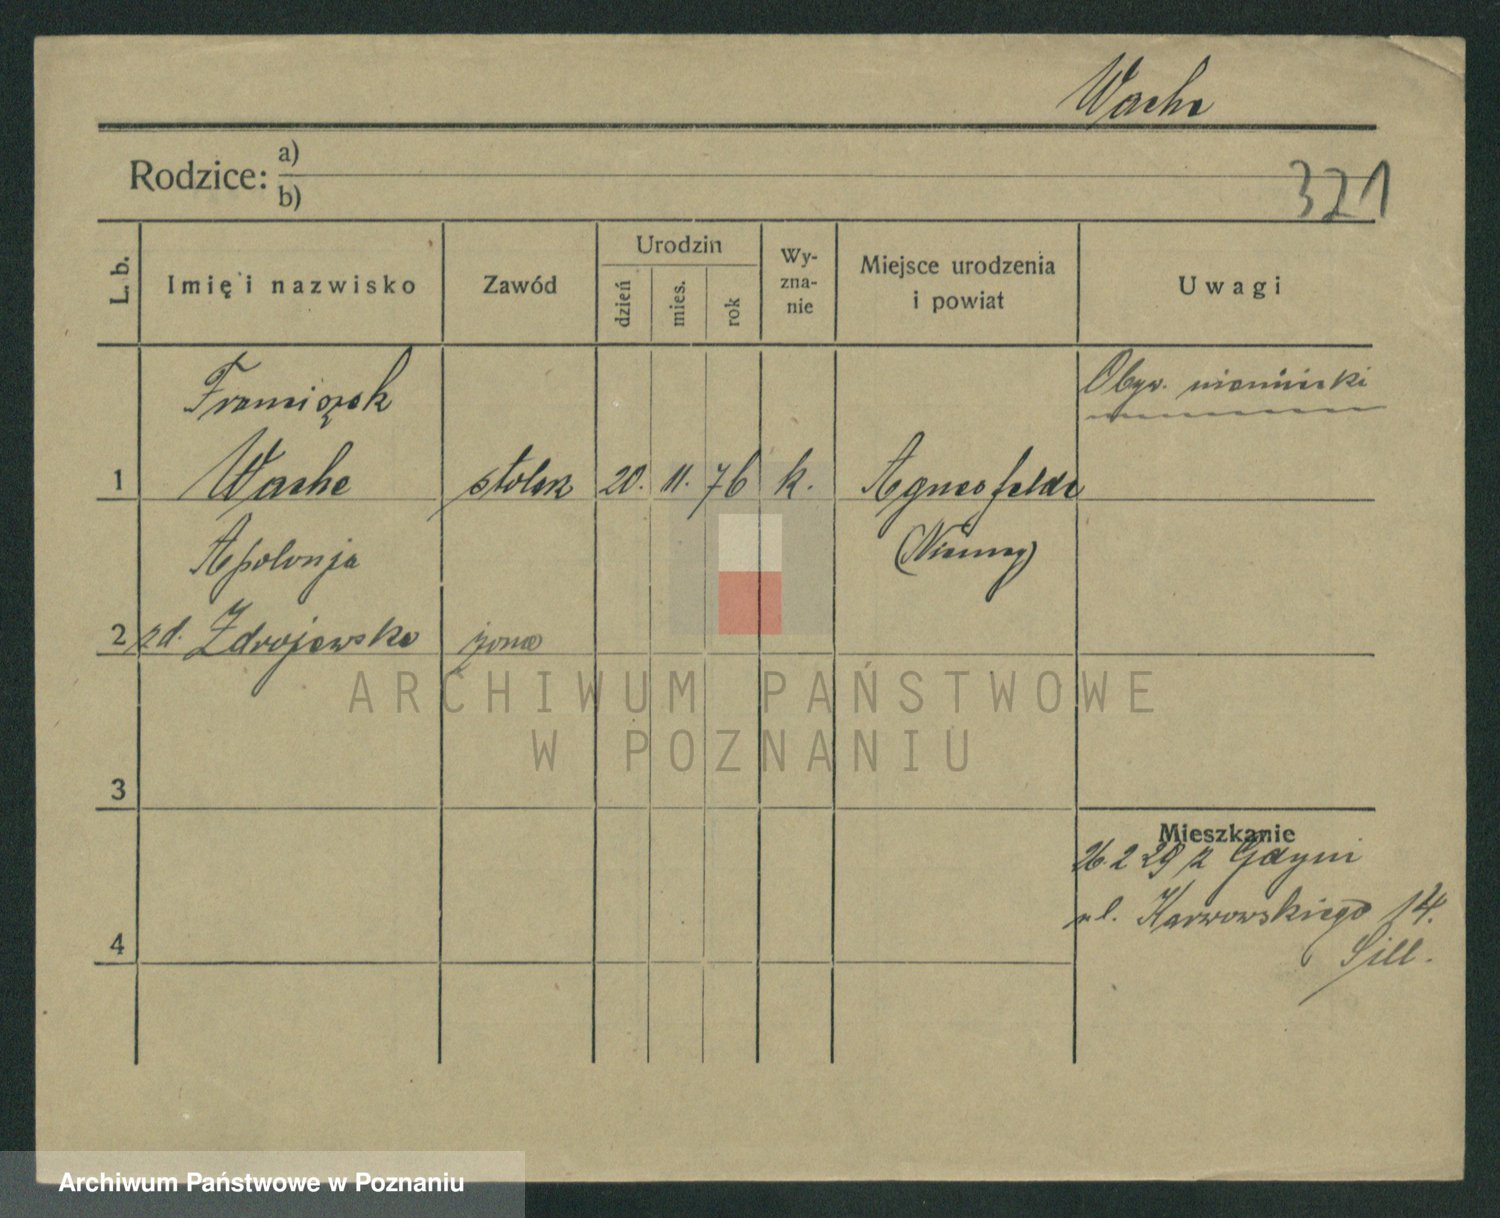 Wache
Rodzice: a)
b)
321
L. b.
Imię i nazwisko
Zawód
Urodzin
dzień
mies.
rok
Wy-
zna-
nie
Miejsce urodzenia
i powiat
Uwagi
Franciszek
Obyw. niemiecki
1
Wache
stolarz
20.
11.
76
k.
Agnesfelde
Apolonja
(Niemcy)
2
zd. Zdrojewska
żona
ARCHIWUM PAŃSTWOWE
W POZNANIU
3
Mieszkanie
26.2 29 z Gdyni
ul. Karwowskiego 14.
4
Archiwum Państwowe w Poznaniu